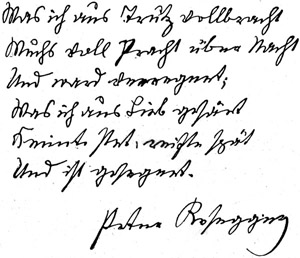 Was ich aus Trutz vollbracht
Wuchs voll Pracht über Nacht
Und ward verregnet;
Was ich aus Lieb gesäet
Keimte stet, reifte spät
Und ist gesegnet.
Peter Rosegger